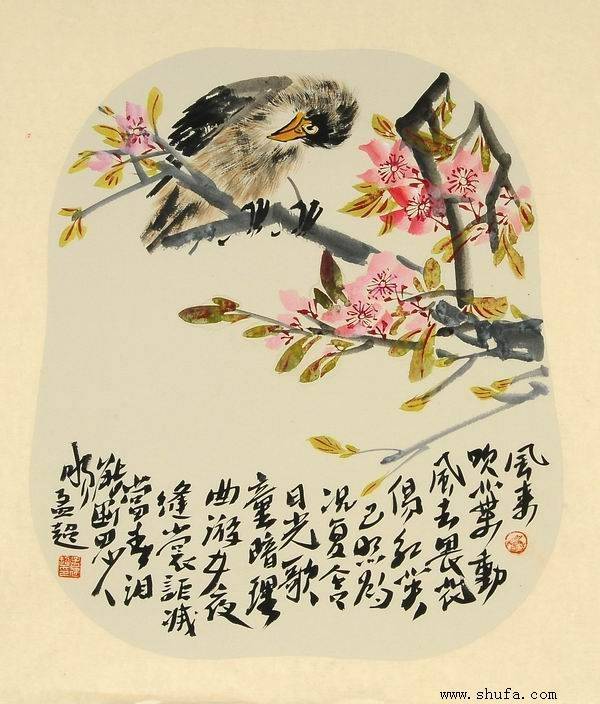 風来
吹葉動
風去畏花
傷红英
已照灼
况复含
日光歌
童暗理
曲游女夜
缝裳詎减
當春泪
能断思人
腸孟超
www.shufa.com